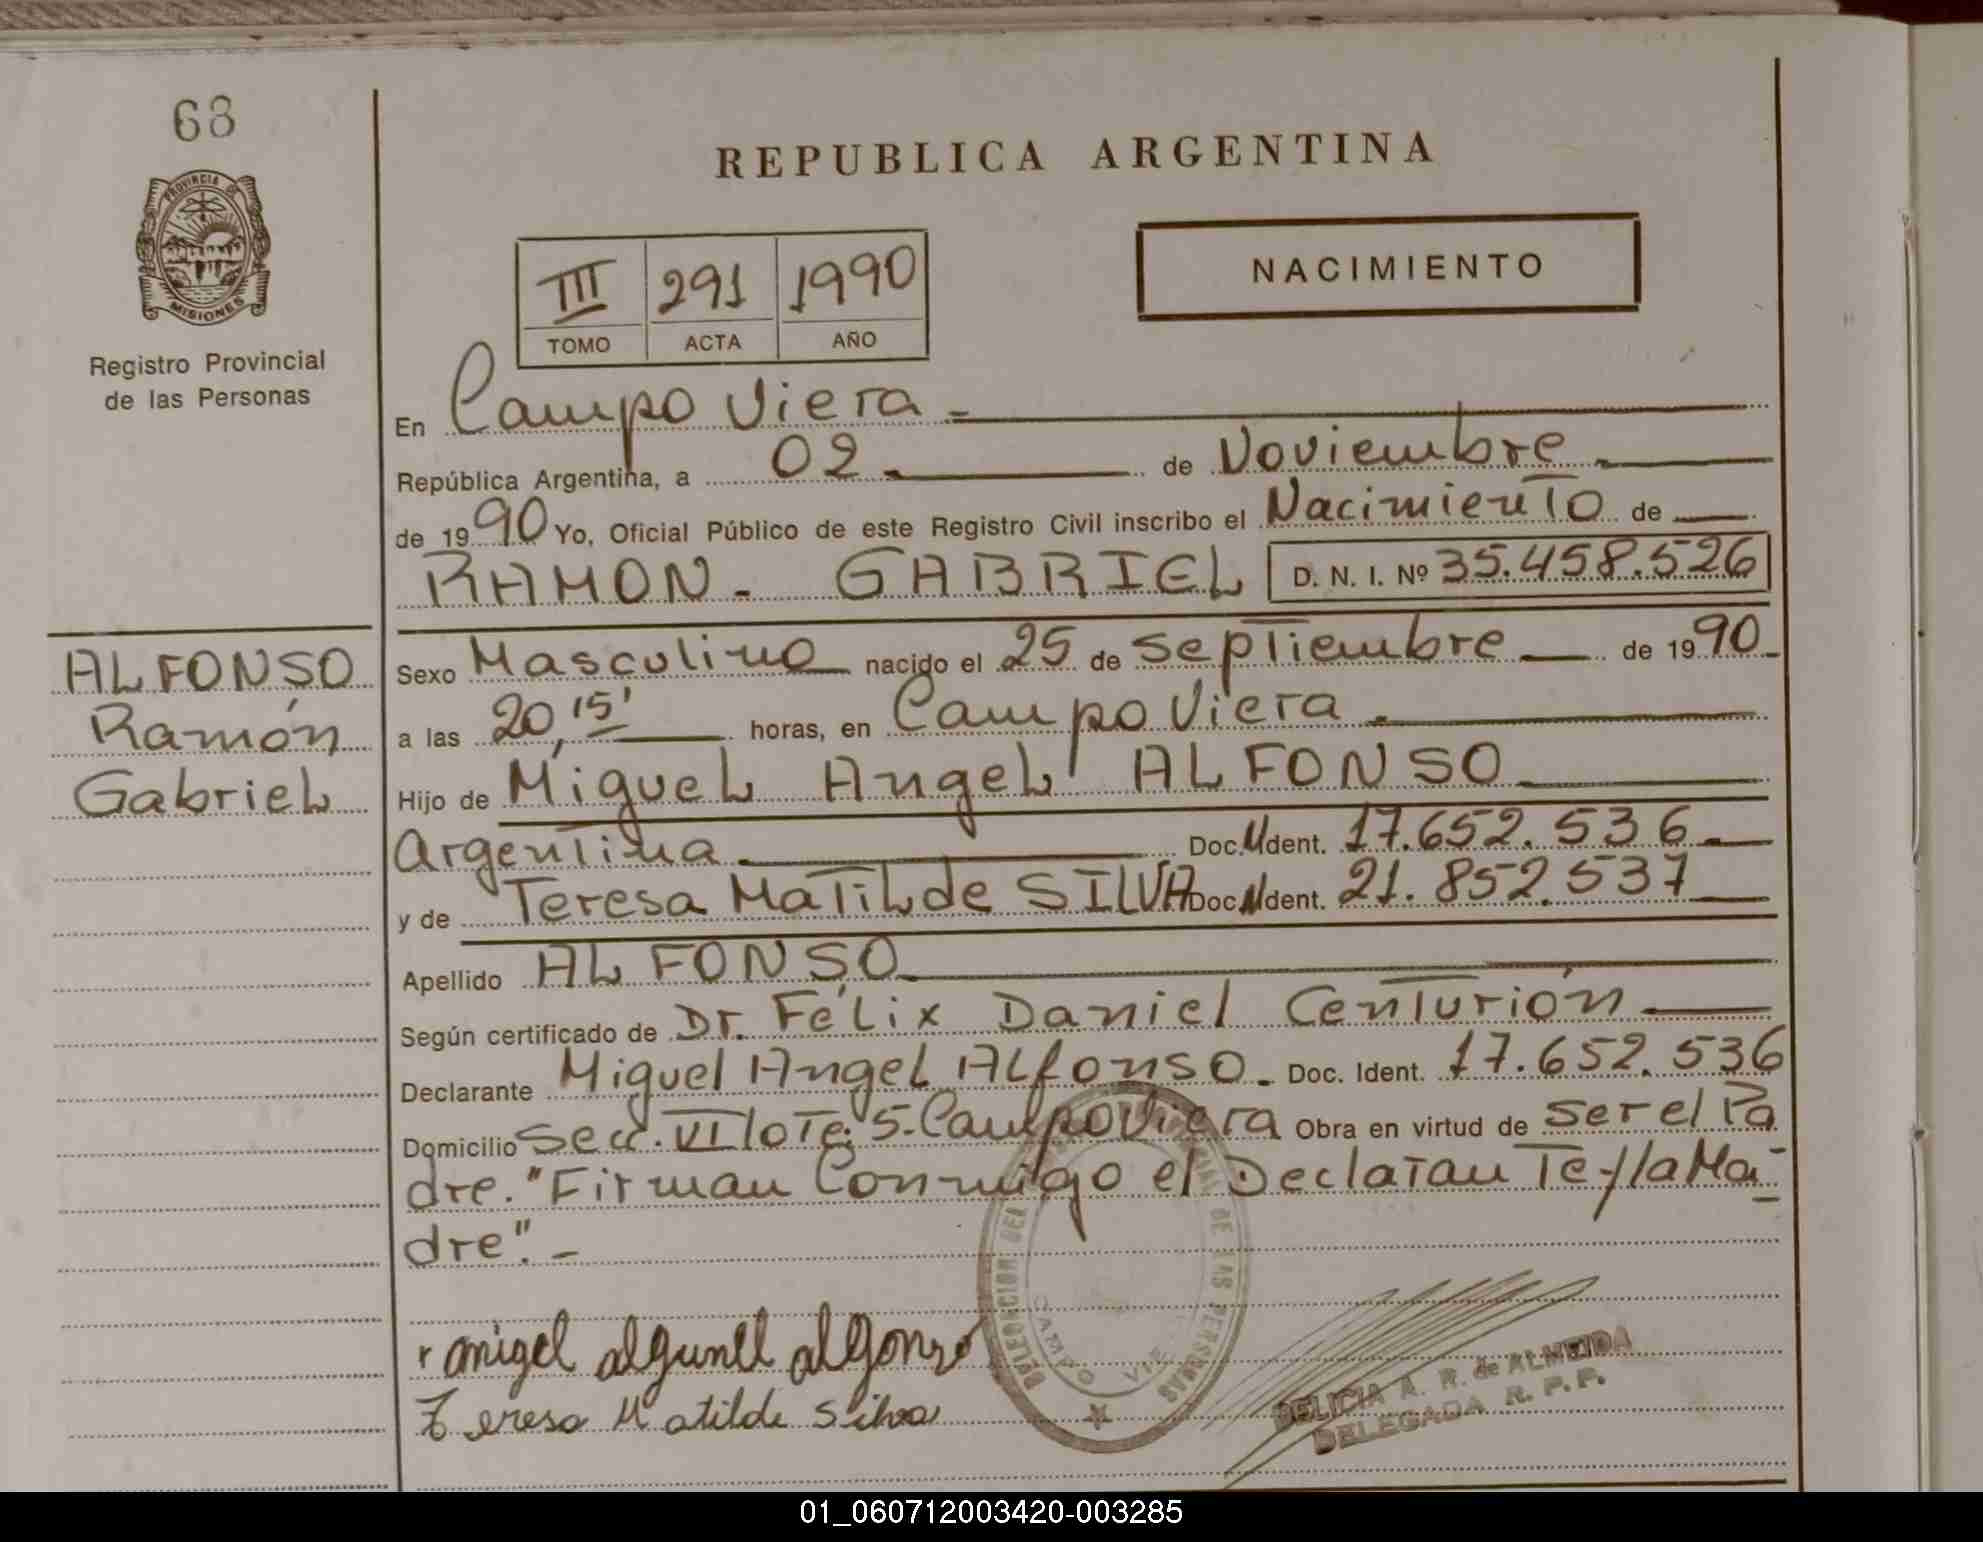 68
PROVINCIA DE
MISIONES
Registro Provincial
de las Personas
REPUBLICA ARGENTINA
III 291 1990
TOMO ACTA AÑO
NACIMIENTO
En Campo Viera -
República Argentina, a 02 de Noviembre
de 1990 Yo, Oficial Público de este Registro Civil inscribo el Nacimiento de
RAMON - GABRIEL D. N. I. Nº 35.458.526
ALFONSO
Ramón
Gabriel
Sexo Masculino nacido el 25 de septiembre de 1990
a las 20,15' horas, en Campo Viera
Hijo de Miguel Angel ALFONSO
Argentina Doc. Ident. 17.652.536
y de Teresa Matilde SILVA Doc. Ident. 21.852.537
Apellido ALFONSO
Según certificado de Dr. Félix Daniel Centurión
Declarante Miguel Angel Alfonso. Doc. Ident. 17.652.536
Domicilio Secc. VI lote 5-Campo Viera Obra en virtud de ser el Pa
dre. "Firman Conmigo el Declarante y la Ma-
dre". -
migel algunel alfonso
Teresa Matilde Silva
DELEGACION DEL DE LAS PERSONAS
CAMPO VIE
DELICIA A. R. de ALMEIDA
DELEGADA R. P. P.
01_060712003420-003285